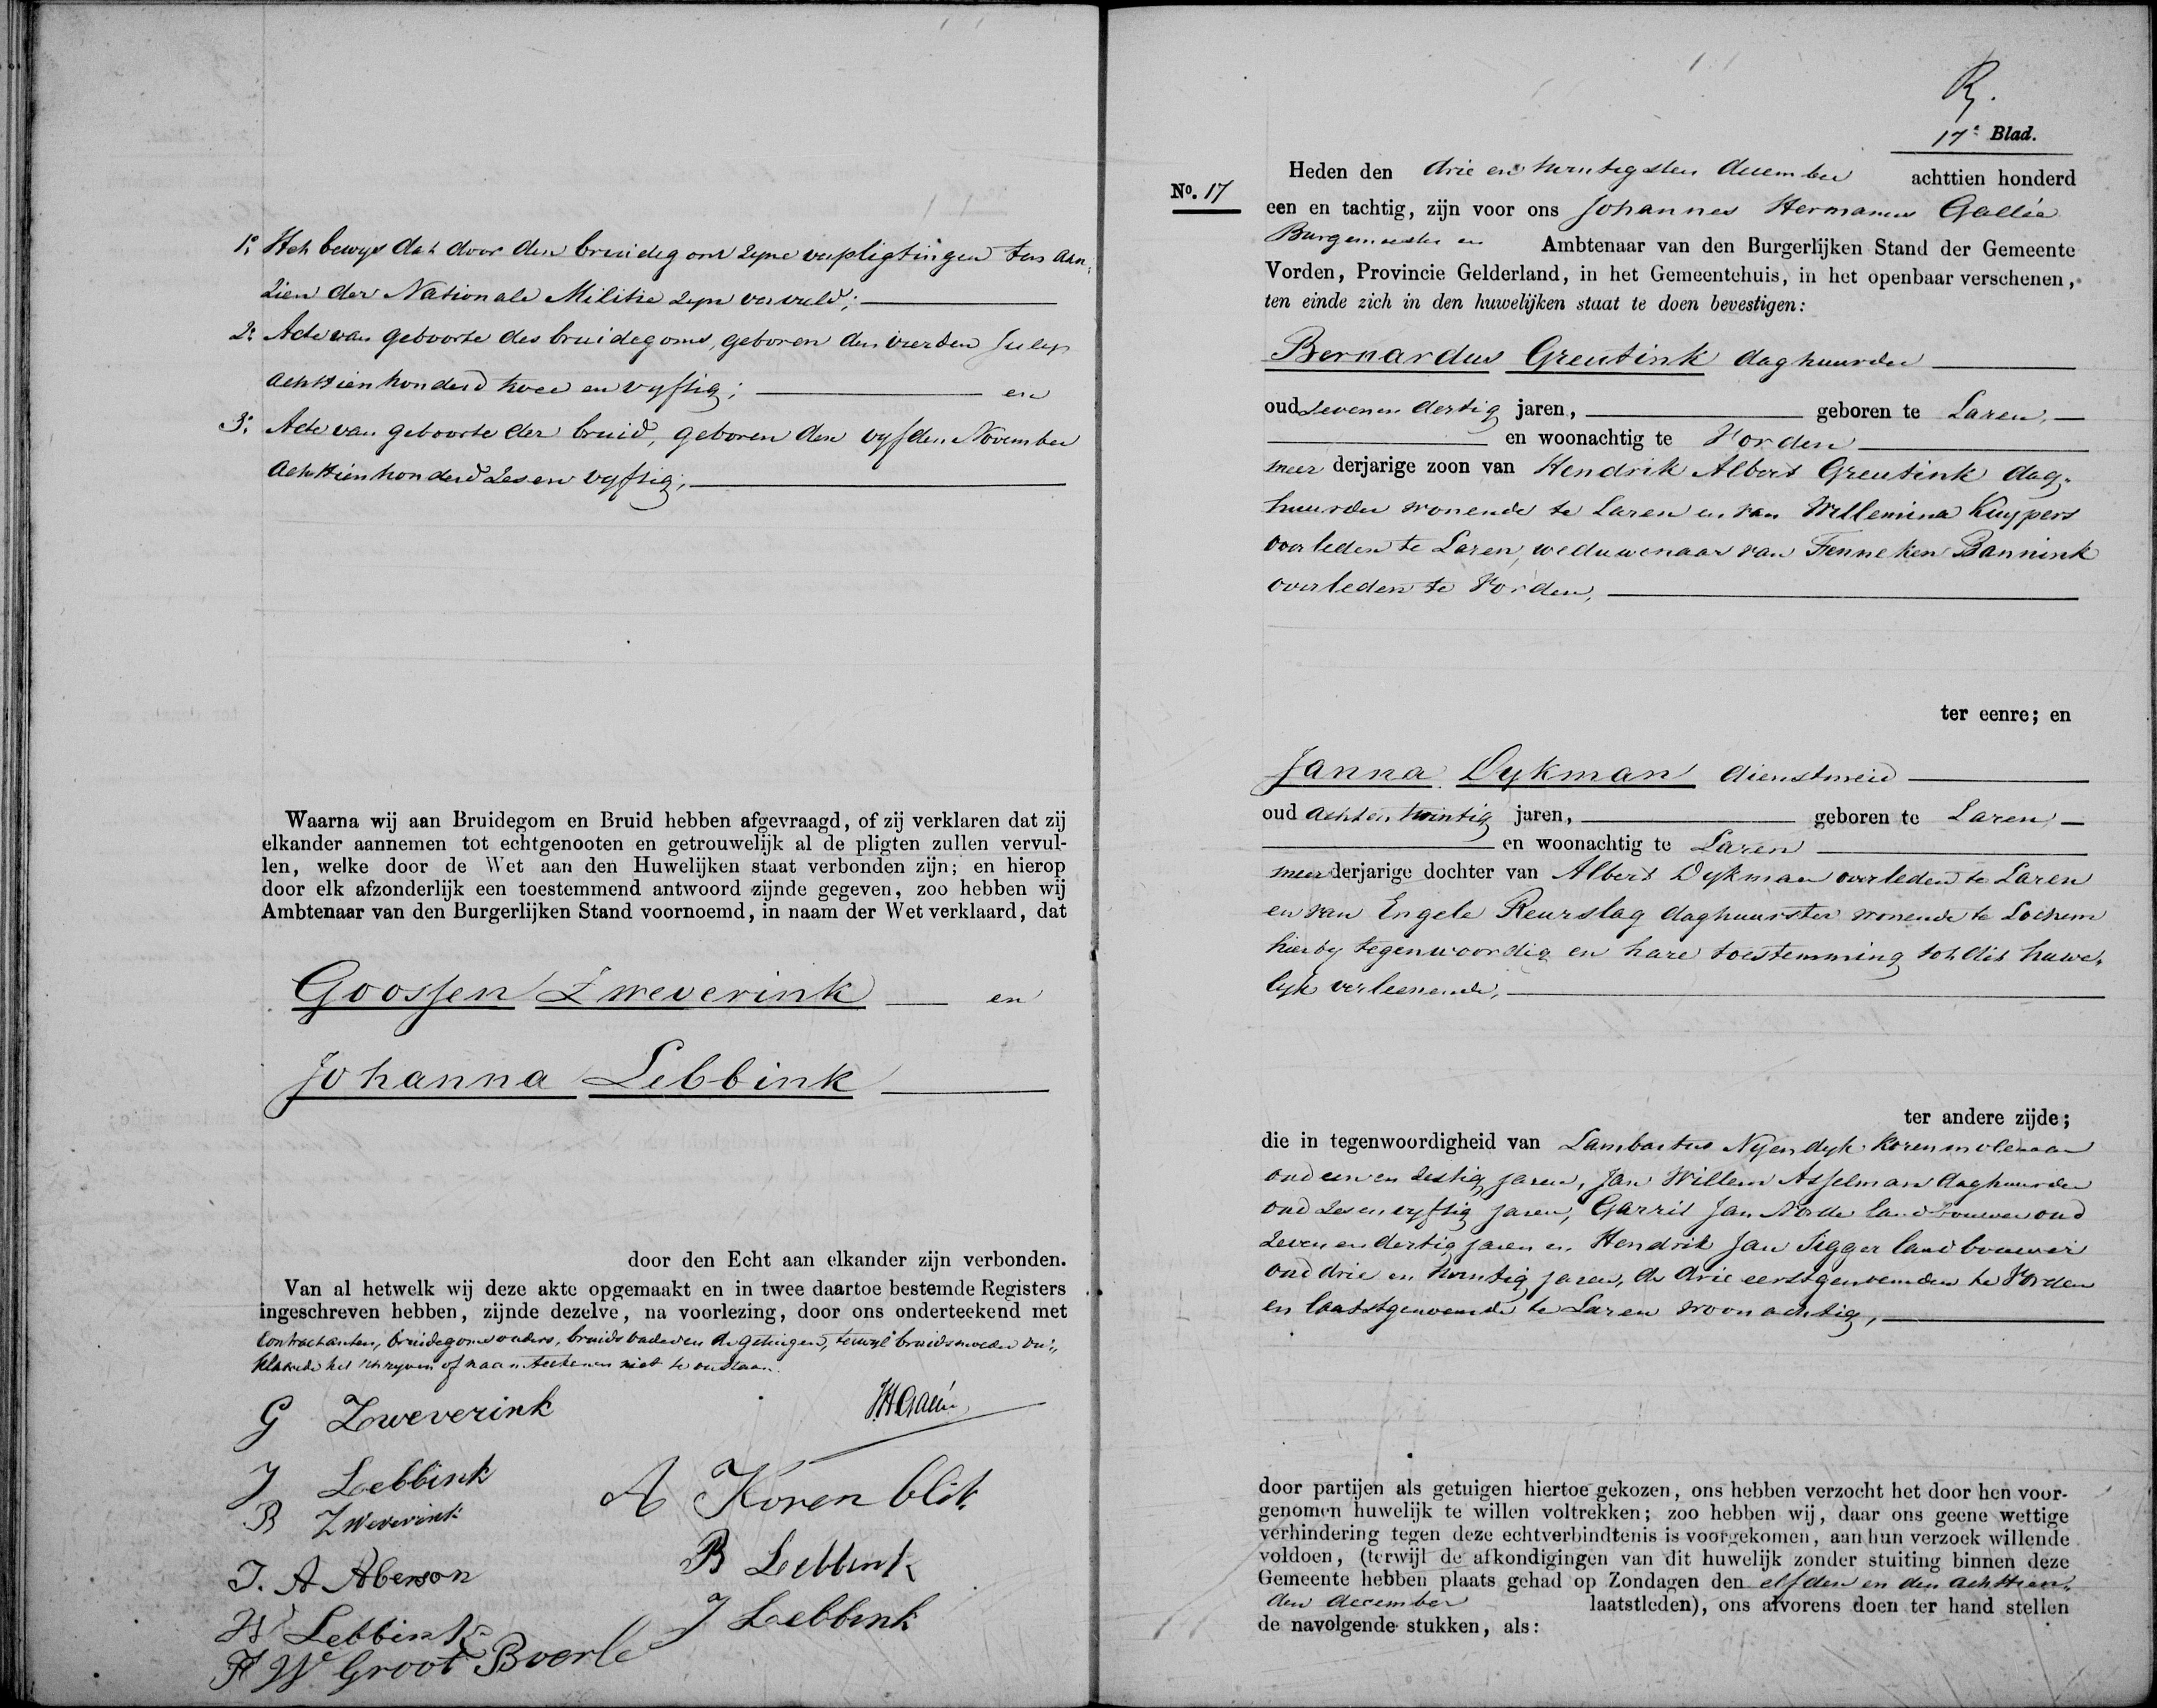 1º. Het bewys dat door den bruidegom zyne verpligtingen ten aan-
zien der Nationale Militie zyn vervuld;
2º. Acte van geboorte des bruidegoms, geboren den vierden July
achttienhonderd twee en vyftig; en
3º. Acte van geboorte der bruid, geboren den vyfden November
achttienhonderd zes en vyftig;
Waarna wij aan Bruidegom en Bruid hebben afgevraagd, of zij verklaren dat zij
elkander aannemen tot echtgenooten en getrouwelijk al de pligten zullen vervul-
len, welke door de Wet aan den Huwelijken staat verbonden zijn; en hierop
door elk afzonderlijk een toestemmend antwoord zijnde gegeven, zoo hebben wij
Ambtenaar van den Burgerlijken Stand voornoemd, in naam der Wet verklaard, dat
Goossen Zweverink en
Johanna Lebbink
door den Echt aan elkander zijn verbonden.
Van al hetwelk wij deze akte opgemaakt en in twee daartoe bestemde Registers
ingeschreven hebben, zijnde dezelve, na voorlezing, door ons onderteekend met
Contractanten, bruidegoms ouders, bruids vader en de getuigen, terwyl bruids moeder ver-
klaarde het schryven of naamteekenen niet te verstaan.
G Zweverink
JHGallée
J Lebbink
A Korenblik
B Zweverink
B Lebbink
J. A Aberson
J Lebbink
W Lebbink
H W Groot Boerle
R.
17e Blad.
No. 17
Heden den drie en twintigsten december achttien honderd
een en tachtig, zijn voor ons Johannes Hermanus Gallée
Burgemeester en Ambtenaar van den Burgerlijken Stand der Gemeente
Vorden, Provincie Gelderland, in het Gemeentehuis, in het openbaar verschenen,
ten einde zich in den huwelijken staat te doen bevestigen:
Bernardus Greutink daghuurder
oud zeven en dertig jaren, geboren te Laren,
en woonachtig te Vorden
meerderjarige zoon van Hendrik Albert Greutink dag-
huurder wonende te Laren en van Willemina Kuypers
overleden te Laren, weduwenaar van Fenneken Bannink
overleden te Vorden,
ter eenre; en
Janna Dykman dienstmeid
oud acht en twintig jaren, geboren te Laren,
en woonachtig te Laren
meerderjarige dochter van Albert Dykman overleden te Laren
en van Engele Reurslag daghuurster wonende te Lochem
hierby tegenwoordig en hare toestemming tot dit huwe-
lyk verleenende,
ter andere zijde;
die in tegenwoordigheid van Lambartus Nyendyk korenmolenaar
oud een en zestig jaren, Jan Willem Asselman daghuurder
oud zes en vyftig jaren, Garrit Jan Norde landbouwer oud
zeven en dertig jaren en Hendrik Jan Sigger landbouwer
oud drie en twintig jaren, de drie eerstgenoemden te Vorden
en laatstgenoemde te Laren woonachtig,
door partijen als getuigen hiertoe gekozen, ons hebben verzocht het door hen voor-
genomen huwelijk te willen voltrekken; zoo hebben wij, daar ons geene wettige
verhindering tegen deze echtverbindtenis is voorgekomen, aan hun verzoek willende
voldoen, (terwijl de afkondigingen van dit huwelijk zonder stuiting binnen deze
Gemeente hebben plaats gehad op Zondagen den elfden en den achttien-
den december laatstleden), ons alvorens doen ter hand stellen
de navolgende stukken, als: